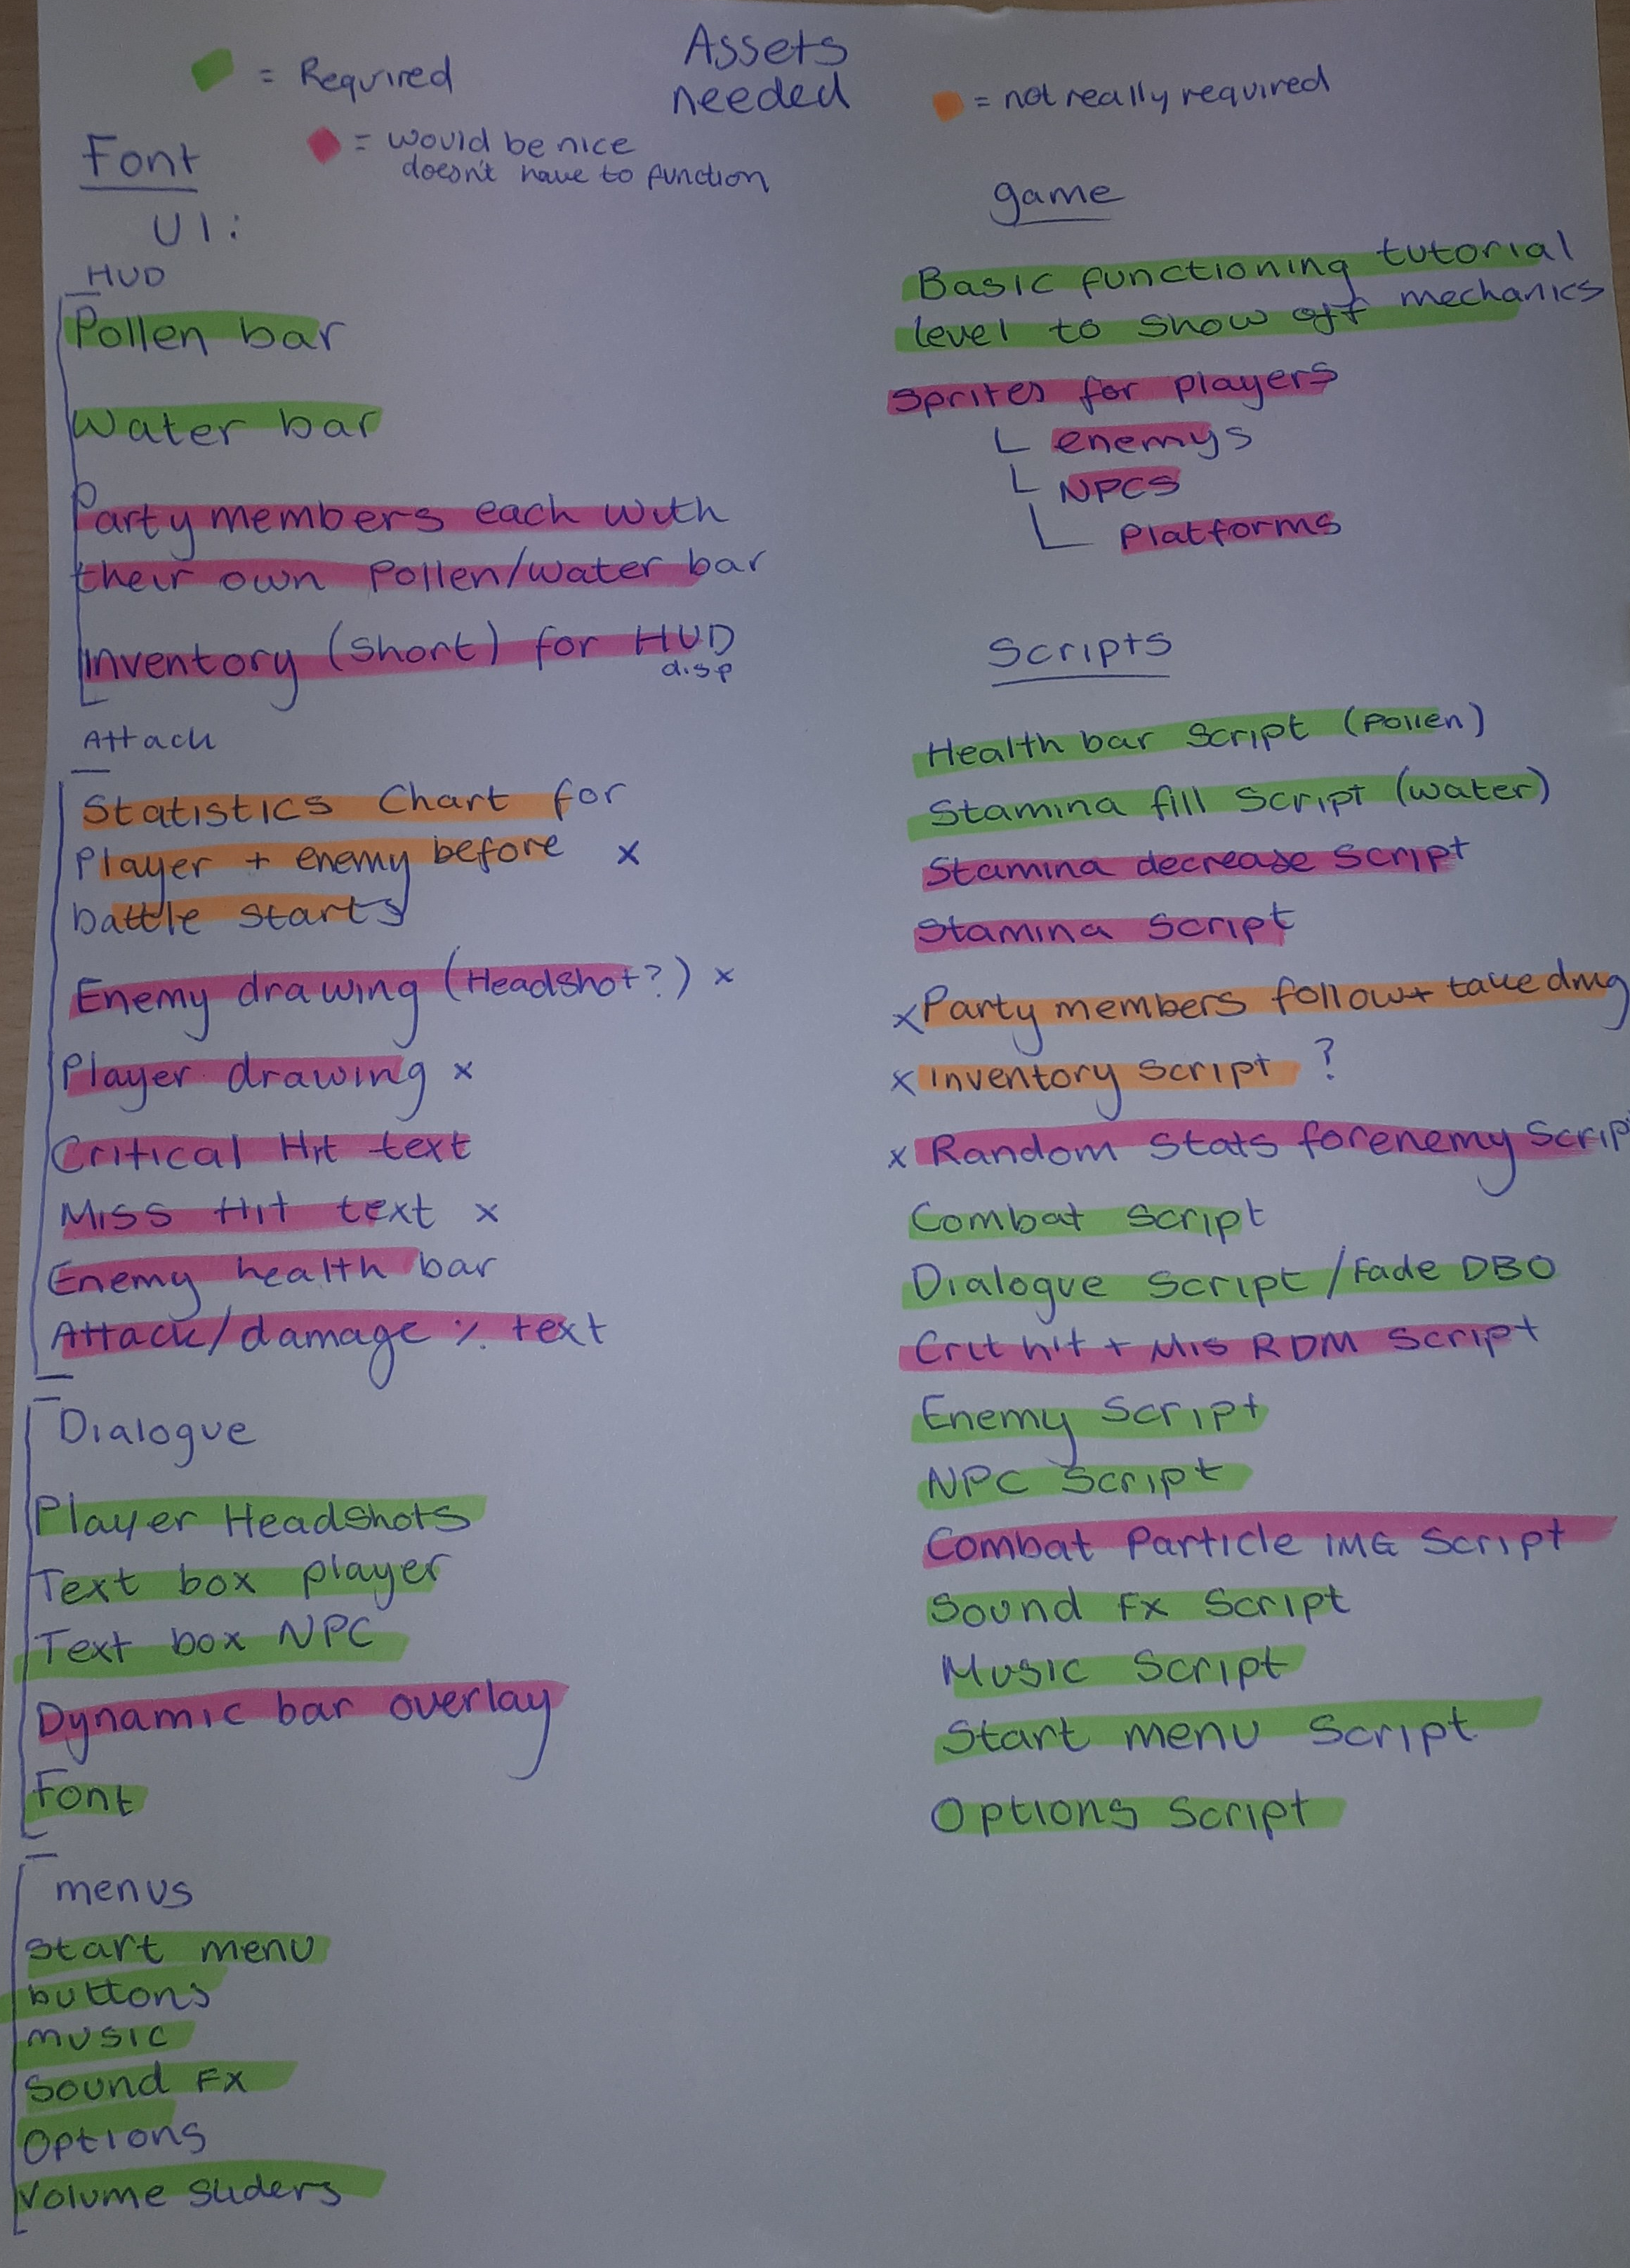 Assets
needed
= Required
= not really required
= would be nice
doesn't have to function
Font
UI:
HUD
Pollen bar
Water bar
Party members each with
their own Pollen/water bar
Inventory (short) for HUD
disp
Attack
Statistics Chart for
Player + enemy before x
battle starts
Enemy drawing (Headshot?) x
Player drawing x
Critical Hit text
Miss Hit text x
Enemy health bar
Attack/damage % text
Dialogue
Player Headshots
Text box player
Text box NPC
Dynamic bar overlay
Font
menus
Start menu
buttons
music
Sound FX
Options
Volume sliders
game
Basic functioning tutorial
level to show off mechanics
Sprites for players
enemys
NPCS
Platforms
Scripts
Health bar Script (pollen)
Stamina fill Script (water)
Stamina decrease Script
Stamina Script
x Party members follow + take dmg
x Inventory Script ?
x Random Stats for enemy Scrip
Combat Script
Dialogue Script / Fade DBO
Crit hit + Mis RDM Script
Enemy Script
NPC Script
Combat Particle IMG Script
Sound FX Script
Music Script
Start menu Script
Options Script